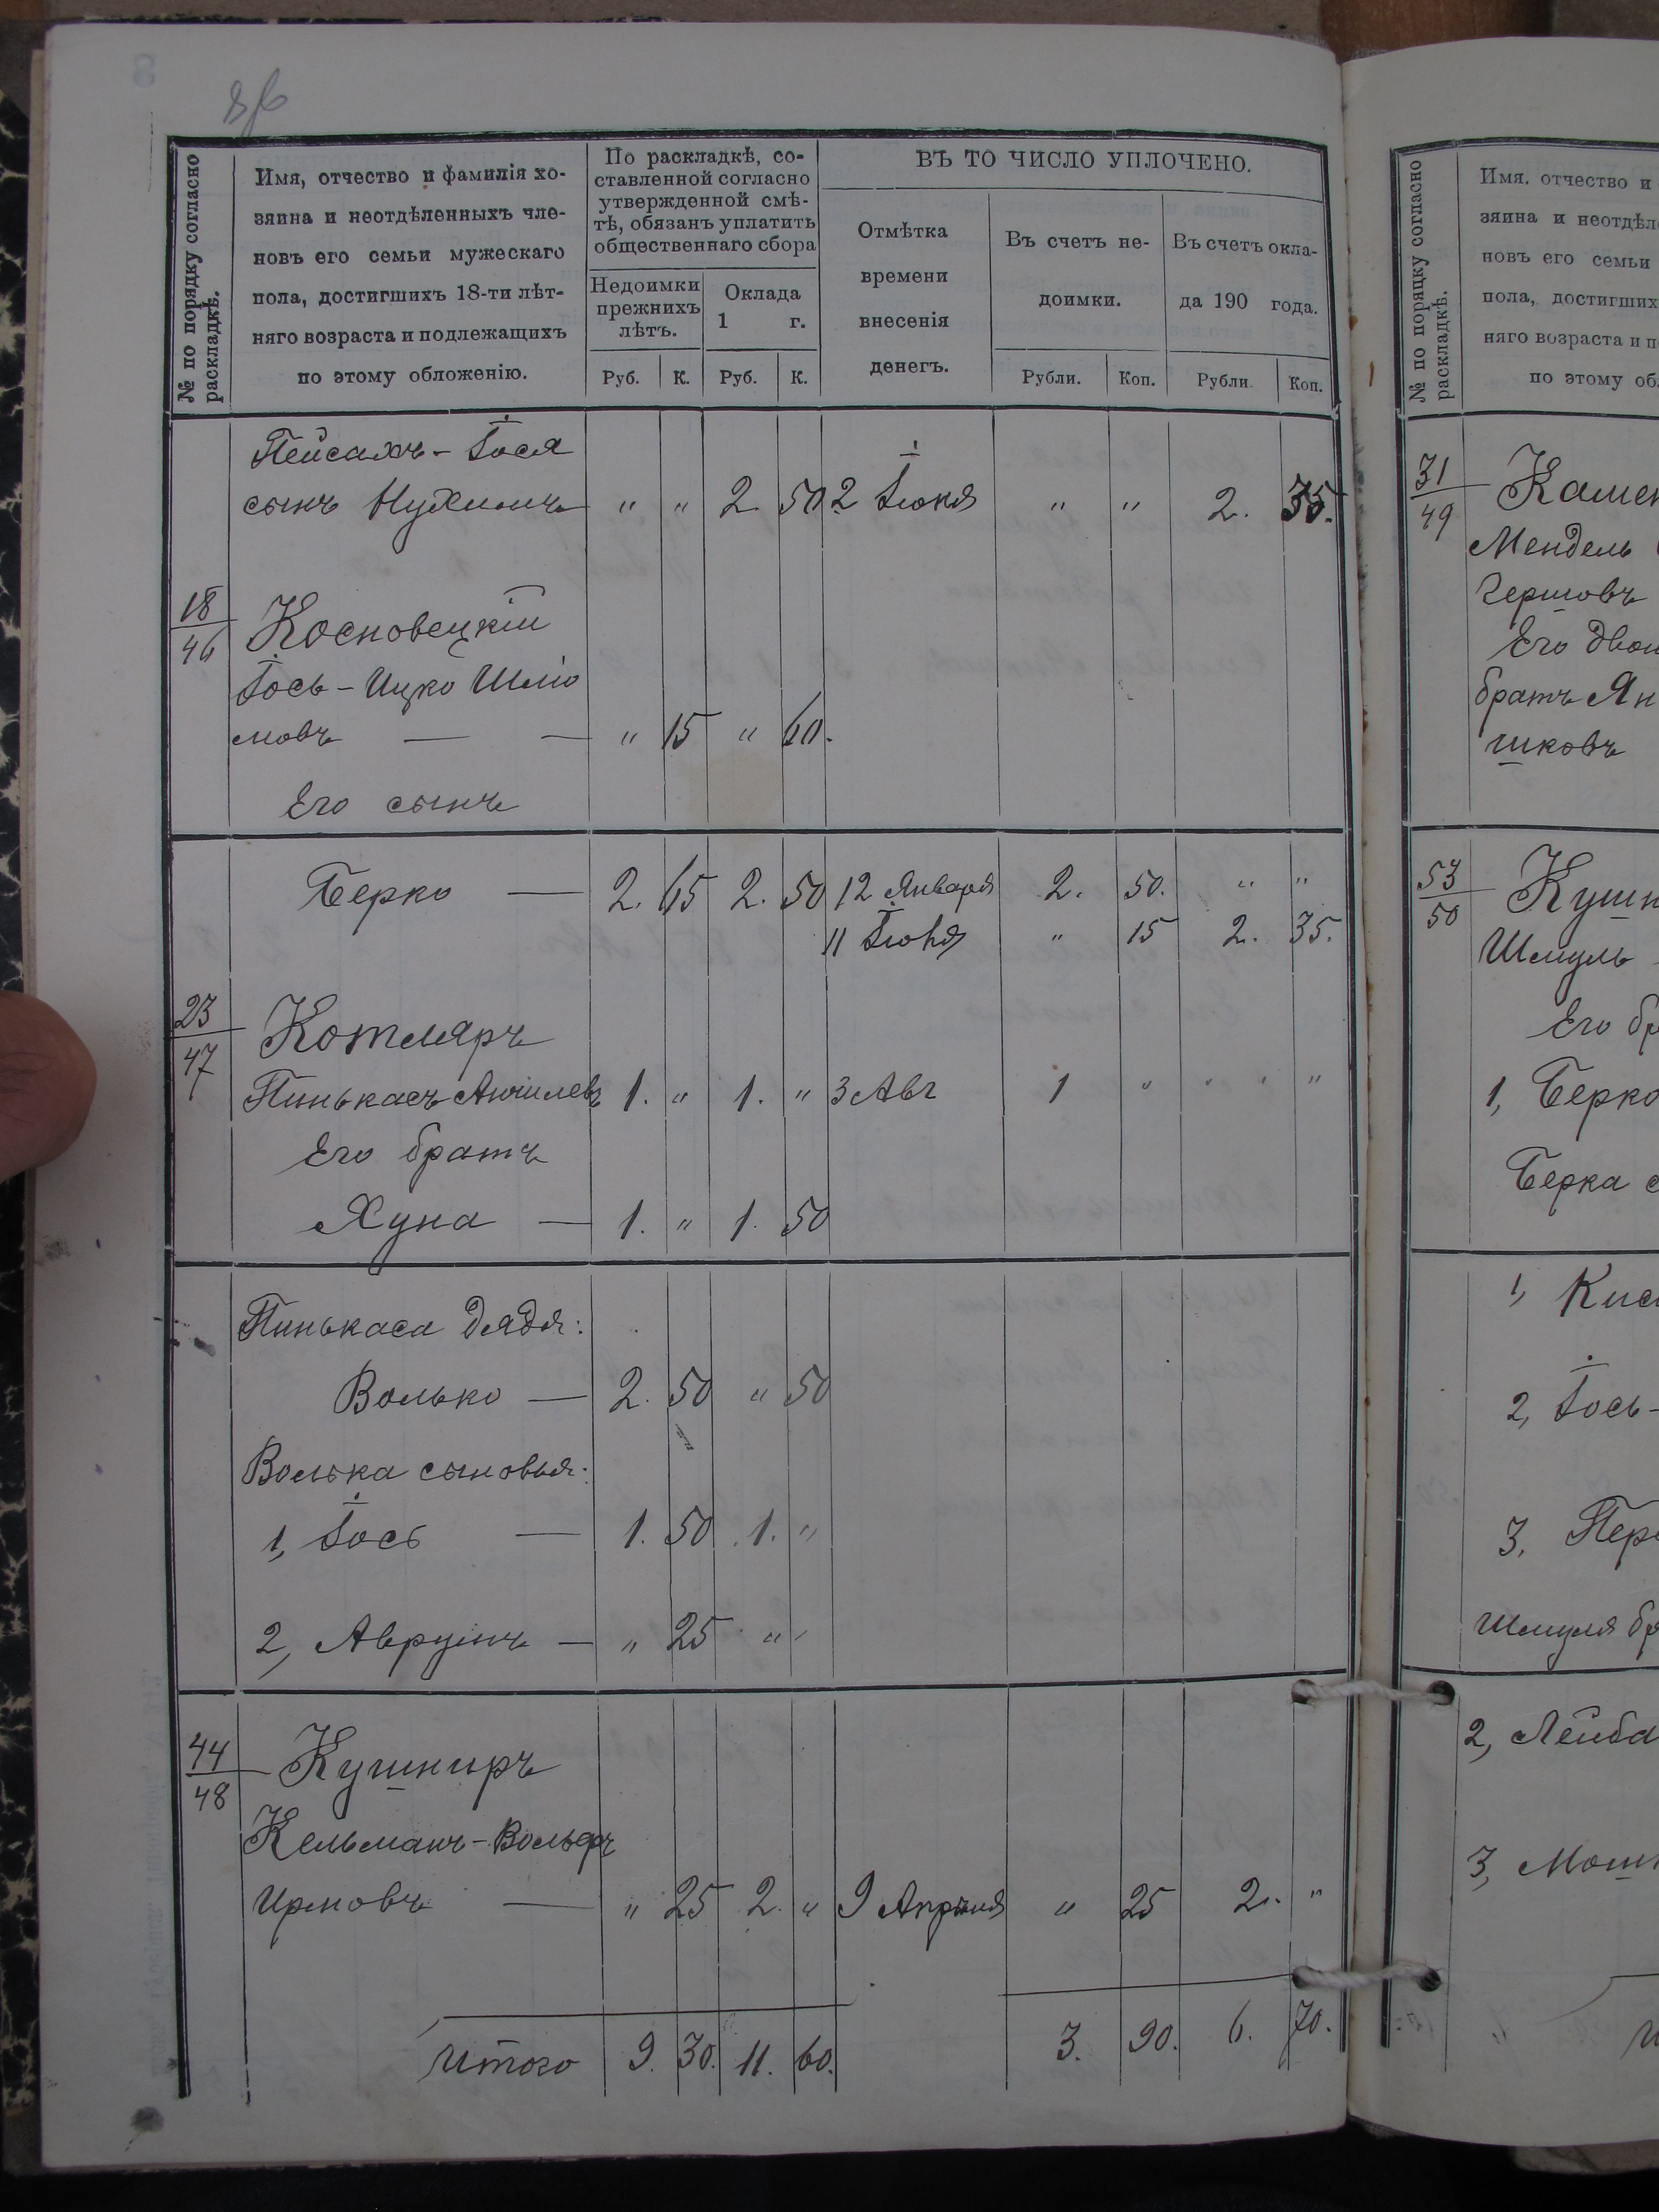 8б
№ по порядку согласно раскладкѣ.
Имя, отчество и фамилія хо-
зяина и неотдѣленныхъ чле-
новъ его семьи мужескаго
пола, достигшихъ 18-ти лѣт-
няго возраста и подлежащихъ
по этому обложенію.
По раскладкѣ, со-
ставленной согласно
утвержденной смѣ-
тѣ, обязанъ уплатить
общественнаго сбора
Недоимки
прежнихъ
лѣтъ.
Оклада
1 г.
Руб. К. Руб. К.
ВЪ ТО ЧИСЛО УПЛОЧЕНО.
Отмѣтка
времени
внесенія
денегъ.
Въ счетъ не-
доимки.
Въ счетъ окла-
да 190 года.
Рубли. Коп. Рубли. Коп.
Пейсахъ-Іося
сынъ Нухимъ " " 2. 50 2 Іюня " " 2. 35.
18/46 Косновецкій
Іось-Ицко Шліо
мовъ — — " 15 " 60.
Его сынъ
Берко — 2. 65 2. 50 12 Января 2. 50. " "
11 Іюня " 15 2. 35.
23/47 Котляръ
Пинькасъ Аншилевъ 1. " 1. " 3 Авг 1 " " " "
Его братъ
Хуна — 1. " 1. 50
Пинькаса дядя:
Волько — 2. 50 " 50
Волька сыновья:
1, Іось — 1. 50 1. "
2, Аврумъ — " 25 " "
44/48 Кушниръ
Кельманъ-Вольфъ
Ирмовъ — " 25 2. " 9 Апрѣля " 25 2. "
Итого 9. 30. 11. 60. 3. 90. 6. 70.
№ по порядку согласно раскладкѣ.
Имя. отчество и
зяина и неотдѣл
новъ его семьи
пола, достигших
няго возраста и п
по этому об
31/49 Камен
Мендель
Гершовъ
Его двою
братъ Ян
шковъ
53/50 Кушн
Шмуль
Его бр
1, Берко
Берка с
1, Кис
2, Іось-
3, Пер
Шмуля бр
2, Лейба
3, Мош
И